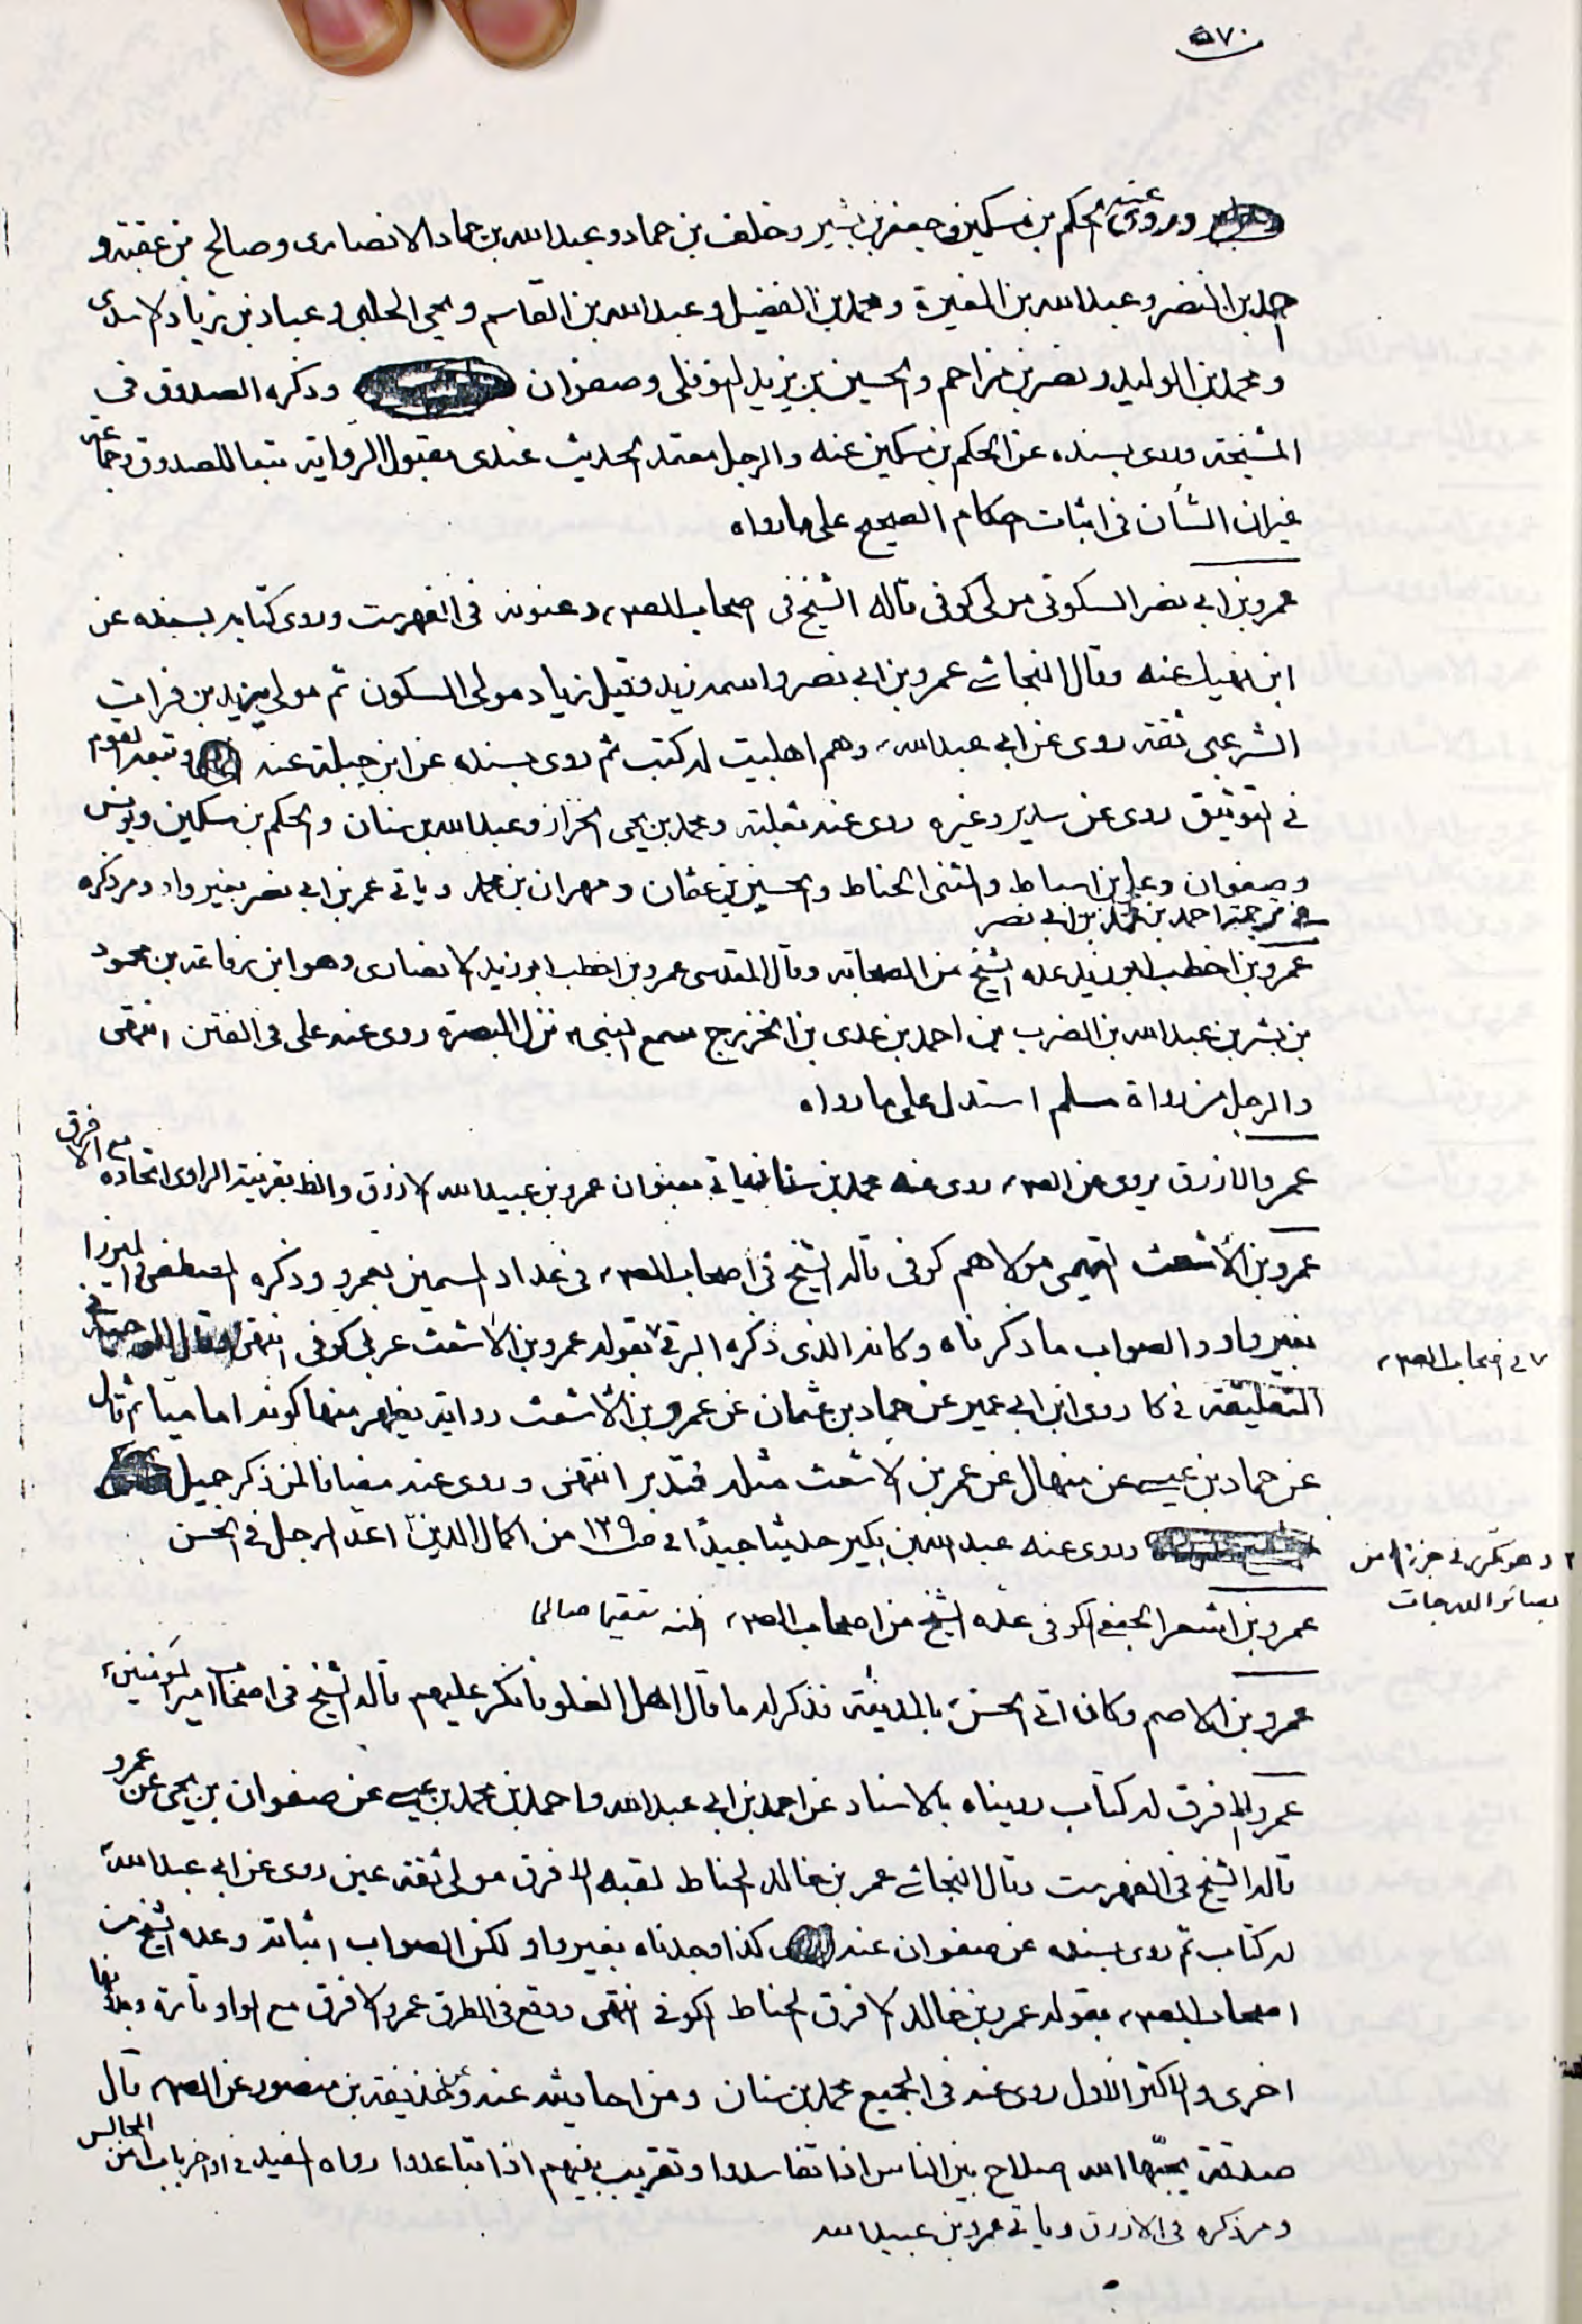 ٥٧٠
وروى عنه الحكم بن مسكين وجعفر بن بشير وخلف بن حماد وعبد الله بن حماد الانصارى وصالح بن عقبة و
احمد بن النضر وعبد الله بن المغيرة ومحمد بن الفضيل وعبد الله بن القاسم ويحيى الحلبى وعباد بن زياد الاسدى
ومحمد بن الوليد ونصر بن مزاحم والحسين بن يزيد النوفلى وصفوان وذكره الصدوق فى
المشيخة وروى بسنده عن الحكم بن مسكين عنه والرجل معتمد الحديث عندى مقبول الرواية تبعا للصدوق وجماعة
غير ان الشأن فى اثبات احكام الصحيح على ما رواه
عمرو بن ابي نصر السكونى مولى كوفى قاله الشيخ فى اصحاب الصم، وعنونه فى الفهرست وروى كتابه بسنده عن
ابن نهيك عنه وقال النجاشى عمرو بن ابى نصر واسمه زيد وقيل زياد مولى السكون ثم مولى يزيد بن فرات
الشرعبى ثقة روى عن ابى عبد الله، وهم اهلبيت له كتب ثم روى بسنده عن ابن جبلة عنه وتبعه القوم
فى التوثيق روى عن سدير وغيره روى عنه ثعلبة ومحمد بن يحيى الخزاز وعبد الله بن سنان والحكم بن مسكين ويونس
وصفوان وعلى بن اسباط والمثنى الحناط والحسين بن عثمان ومهران بن محمد وياتى عمر بن ابى نصر بغير واو ومر ذكره
فى ترجمة احمد بن محمد بن ابى نصر
عمرو بن اخطب ابو زيد عده الشيخ من الصحابة وقال المقدسى عمرو بن اخطب ابو زيد الانصارى وهو ابن رفاعة بن محمود
بن بشر بن عبد الله بن الضرب بن احمد بن عدى بن الخزرج سمع النبى، نزل البصرة روى عنه على فى الفتن انتهى
والرجل من رواة مسلم استدل على ما رواه
عمرو الازرق يروى عن الصم، روى عنه محمد بن سنان ياتى بعنوان عمرو بن عبيد الله الازرق والظ بقرينة الراوى اتحاده مع الافرق
عمرو بن الأشعث التيمى مولاهم كوفى قاله الشيخ فى اصحاب الصم، فى عداد المسمين بعمرو وذكره المصطفى والميرزا
بغير واو والصواب ما ذكرناه وكانه الذى ذكره البرقى ٧ بقوله عمرو بن الاشعث عربى كوفى انتهى فى
٧ فى اصحاب الصم،
التعليقة فى كا روى ابن ابى عمير عن حماد بن عثمان عن عمرو بن الأشعث رواية يظهر منها كونه اماميا ثم قال
عن حماد بن عيسى عن منهال عن عمر بن الاشعث مثله فتدبر انتهى وروى عنه مضافا لمن ذكر جميل
وروى عنه عبد الله بن بكير حديثا جيدا ٢ فى ص ١٢٩ من اكمال الدين اعد الرجل فى الحسن
٢ وهو مكرر فى جزء ١ من
بصائر الدرجات
عمرو بن اشعر الجعفى الكوفى عده الشيخ من اصحاب الصم، اظنه مستقيما صالحا
عمرو بن الاصم وكان اتى الحسن، بالمدينة فذكر له ما قال اهل الغلو فانكر عليهم قاله الشيخ فى اصحاب امير المؤمنين،
عمرو الافرق له كتاب رويناه بالاسناد عن احمد بن ابى عبد الله واحمد بن محمد بن عيسى عن صفوان بن يحيى عن عمرو
قاله الشيخ فى الفهرست وقال النجاشى عمر بن خالد الحناط لقبه الافرق مولى ثقة عين روى عن ابى عبد الله،
له كتاب ثم روى بسنده عن صفوان عنه كذا وجدناه بغير واو لكن الصواب اثباته وعده الشيخ من
اصحاب الصم، بقوله عمرو بن خالد الافرق الحناط الكوفى انتهى ووقع فى الطرق عمرو الافرق مع الواو تارة وبدونها
اخرى والاكثر الاول روى عنه فى الجميع محمد بن سنان ومن احاديثه عنه وعن حذيفة بن منصور عن الصم، قال
صدقة يحبّها الله اصلاح بين الناس اذا تفاسدوا وتقريب بينهم اذا تباعدوا رواه المفيد فى اواخر باب ١ من المجالس
ومر ذكره فى الازرق وياتى عمرو بن عبيد الله